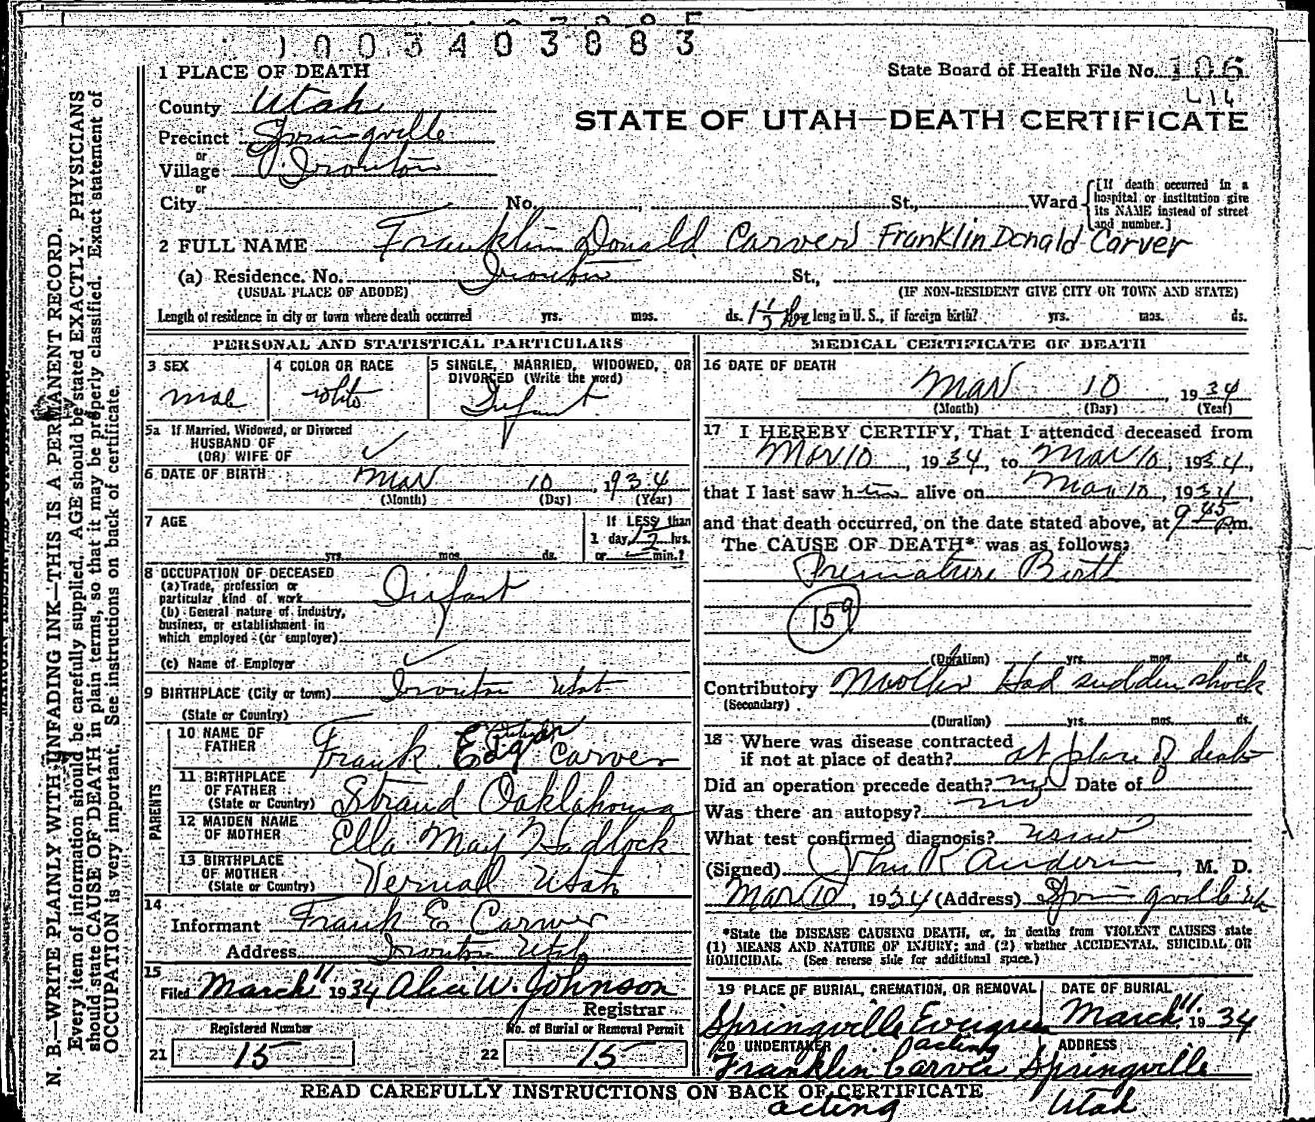 1003403883
1 PLACE OF DEATH
State Board of Health File No. 106
L16
County Utah
STATE OF UTAH—DEATH CERTIFICATE
Precinct Springville
or
Village Ironton
or
City No. , St., Ward [If death occurred in a hospital or institution give its NAME instead of street and number.]
2 FULL NAME Franklin Donald Carver Franklin Donald Carver
(a) Residence. No. Ironton St.,
(USUAL PLACE OF ABODE) (IF NON-RESIDENT GIVE CITY OR TOWN AND STATE)
Length of residence in city or town where death occurred yrs. mos. ds. How long in U. S., if foreign birth? yrs. mos. ds.
PERSONAL AND STATISTICAL PARTICULARS
3 SEX
male
4 COLOR OR RACE
white
5 SINGLE, MARRIED, WIDOWED, OR DIVORCED (Write the word)
Infant
5a If Married, Widowed, or Divorced
HUSBAND OF
(OR) WIFE OF ✓
6 DATE OF BIRTH Mar 10, 1934
(Month) (Day) (Year)
7 AGE
yrs. mos. ds.
If LESS than
1 day, 1/2 hrs.
or min.?
8 OCCUPATION OF DECEASED
(a) Trade, profession or
particular kind of work Infant
(b) General nature of industry,
business, or establishment in
which employed (or employer)
(c) Name of Employer ✓
9 BIRTHPLACE (City or town) Ironton Utah
(State or Country)
PARENTS
10 NAME OF
FATHER Frank Edgar Carver
11 BIRTHPLACE
OF FATHER
(State or Country) Straud Oaklahoma
12 MAIDEN NAME
OF MOTHER Ella May Hadlock
13 BIRTHPLACE
OF MOTHER
(State or Country) Vernal Utah
14
Informant Frank E Carver
Address Ironton Utah
15
Filed March 11 1934 Alice W. Johnson
Registrar
Registered Number
21 15
No. of Burial or Removal Permit
22 15
MEDICAL CERTIFICATE OF DEATH
16 DATE OF DEATH
Mar 10, 1934
(Month) (Day) (Year)
17 I HEREBY CERTIFY, That I attended deceased from
Mar 10, 1934, to Mar 10, 1934,
that I last saw him alive on Mar 10, 1934,
and that death occurred, on the date stated above, at 9 45 P.m.
The CAUSE OF DEATH* was as follows:
Premature Birth
159
(Duration) yrs. mos. ds.
Contributory Mother Had sudden shock
(Secondary)
(Duration) yrs. mos. ds.
18 Where was disease contracted
if not at place of death? at place of death
Did an operation precede death? no Date of
Was there an autopsy? no
What test confirmed diagnosis? usual
(Signed) John R Anderson, M. D.
Mar 10, 1934 (Address) Springville Ut
*State the DISEASE CAUSING DEATH, or, in deaths from VIOLENT CAUSES state
(1) MEANS AND NATURE OF INJURY; and (2) whether ACCIDENTAL, SUICIDAL OR
HOMICIDAL. (See reverse side for additional space.)
19 PLACE OF BURIAL, CREMATION, OR REMOVAL
Springville Evergreen
DATE OF BURIAL
March 11 1934
20 UNDERTAKER acting
Franklin Carver
ADDRESS
Springville
READ CAREFULLY INSTRUCTIONS ON BACK OF CERTIFICATE
acting Utah
N. B.—WRITE PLAINLY WITH UNFADING INK—THIS IS A PERMANENT RECORD.
Every item of information should be carefully supplied. AGE should be stated EXACTLY. PHYSICIANS
should state CAUSE OF DEATH in plain terms, so that it may be properly classified. Exact statement of
OCCUPATION is very important. See instructions on back of certificate.